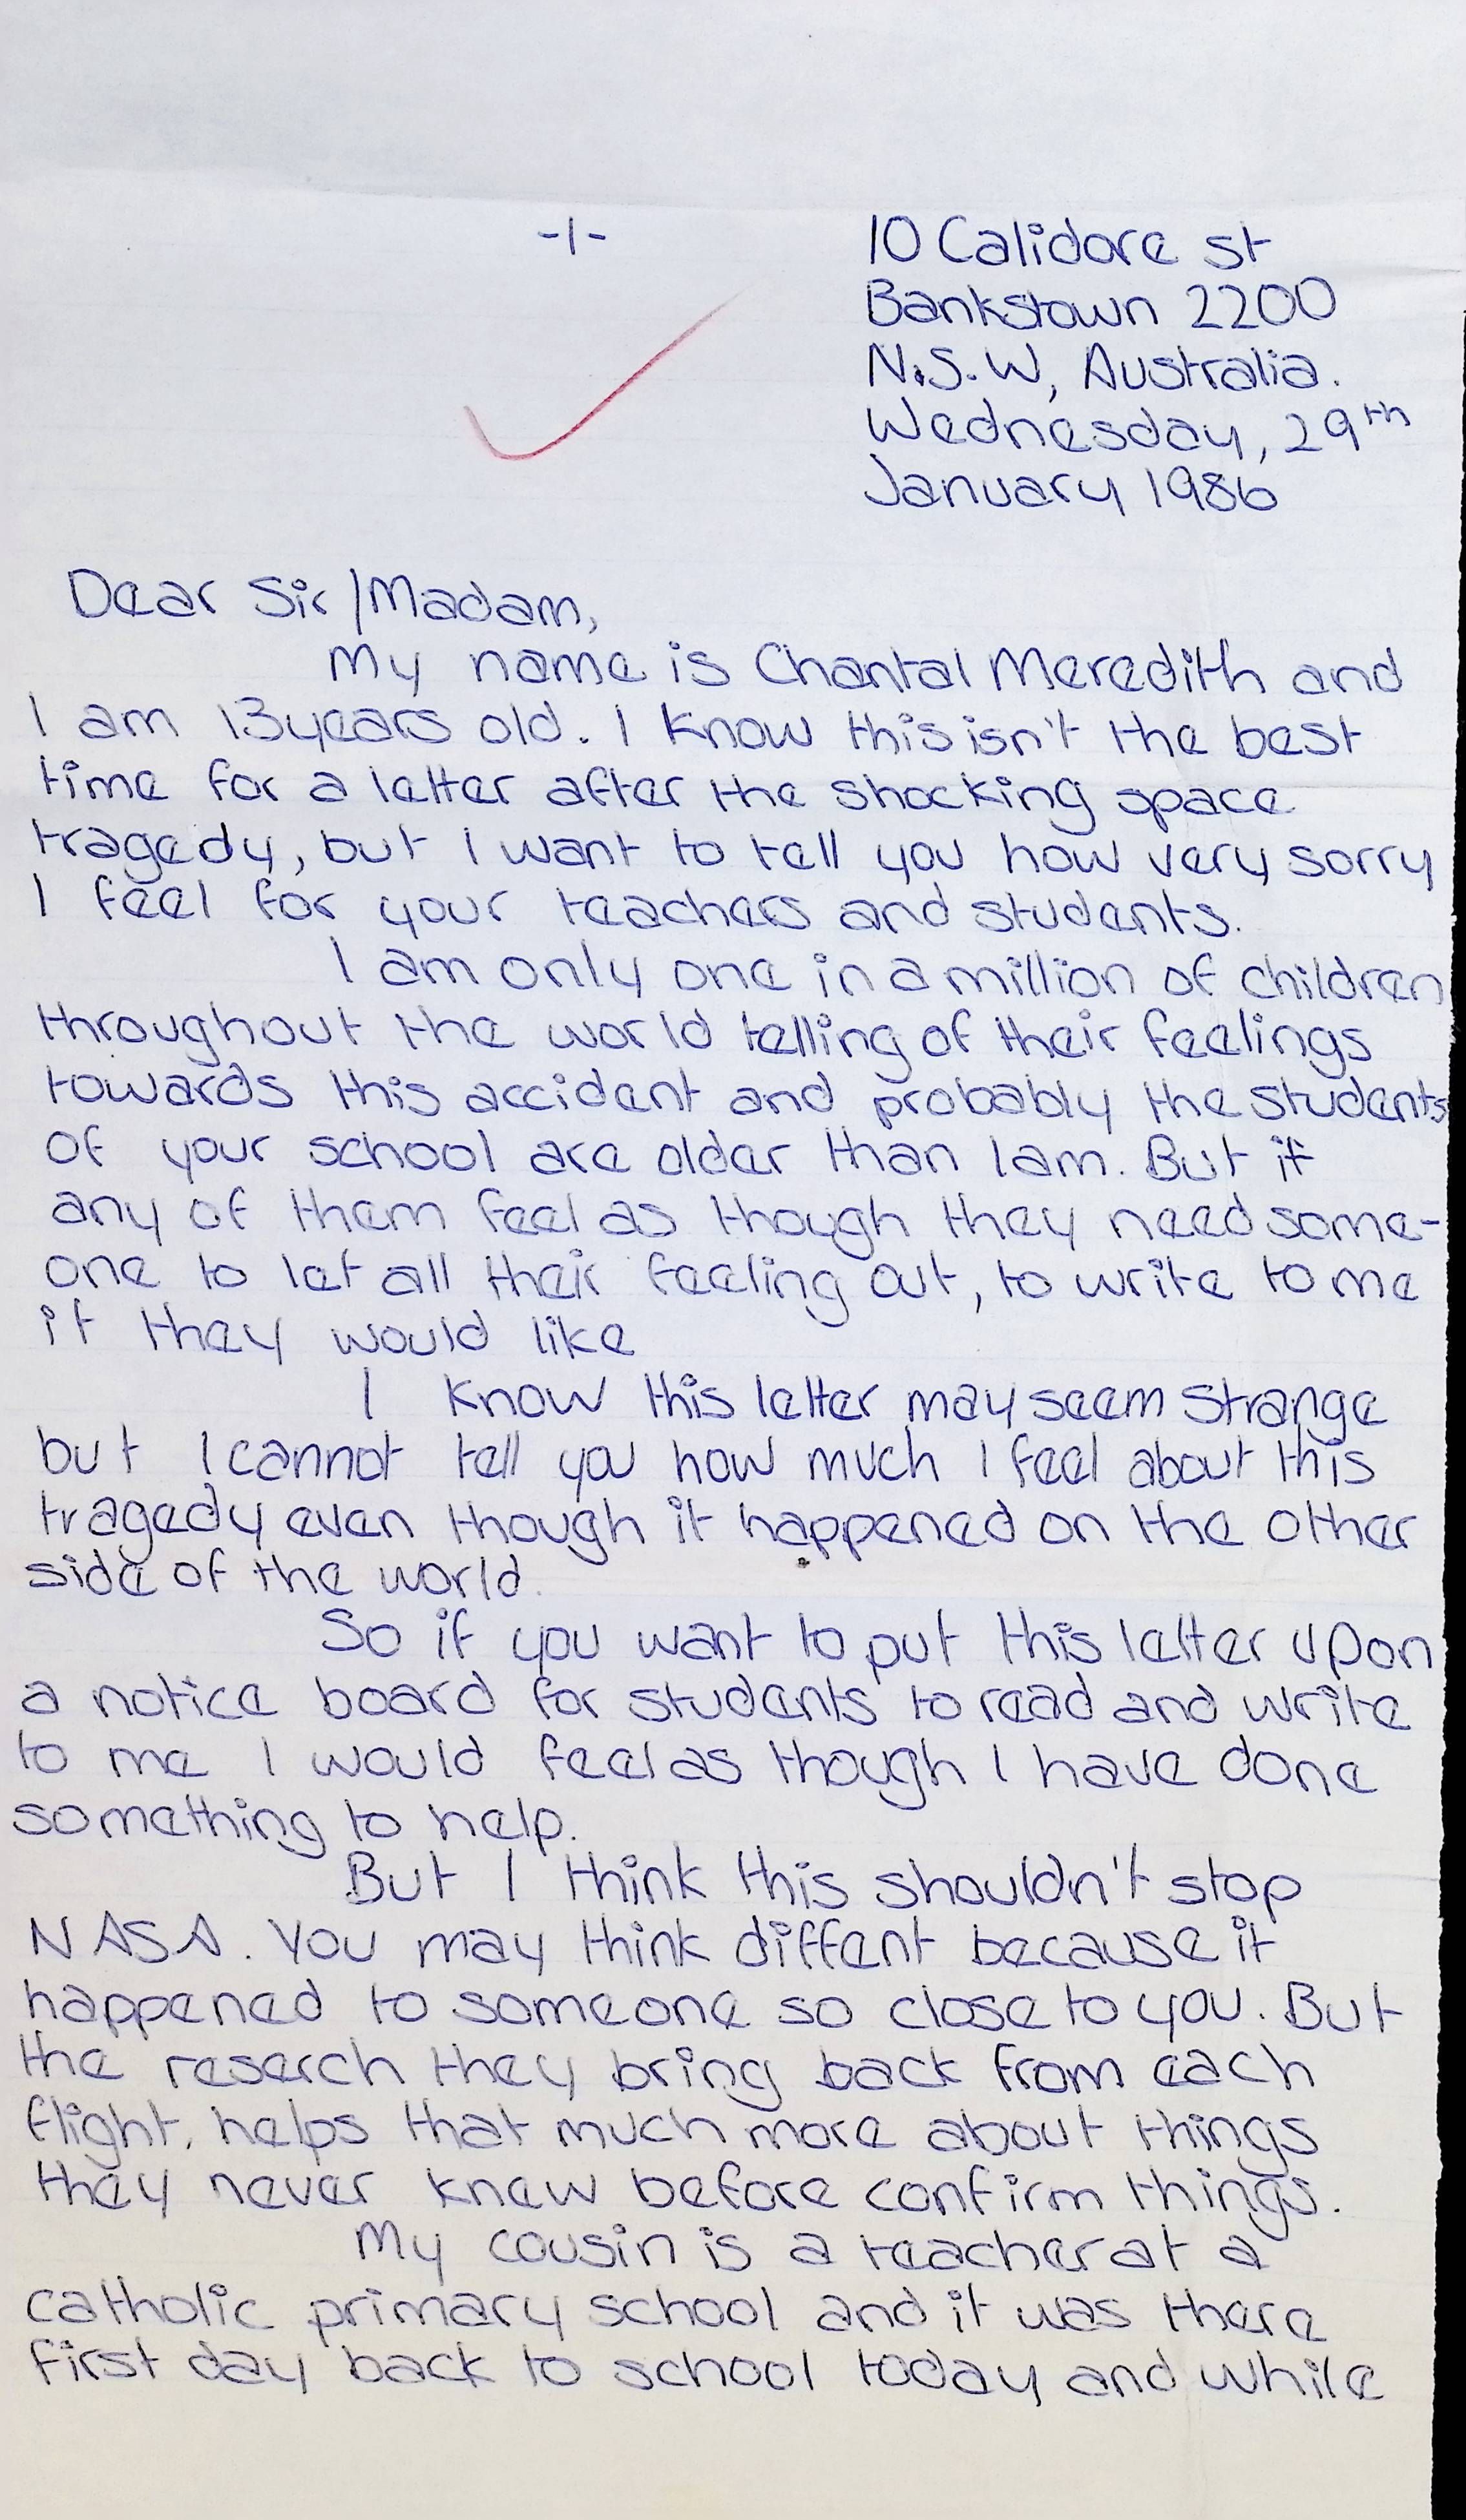 -1-
10 Calidore st
Bankstown 2200
N.S.W, Australia.
Wednesday, 29th
January 1986
Dear Sir/Madam,
My name is Chantal Meredith and
I am 13 years old. I know this isn't the best
time for a letter after the shocking space
tragedy, but I want to tell you how very sorry
I feel for your teachers and students.
I am only one in a million of children
throughout the world telling of their feelings
towards this accident and probably the students
of your school are older than I am. But if
any of them feel as though they need some-
one to let all their feeling out, to write to me
if they would like
I know this letter may seem strange
but I cannot tell you how much I feel about this
tragedy even though it happened on the other
side of the world.
So if you want to put this letter upon
a notice board for students to read and write
to me I would feel as though I have done
something to help.
But I think this shouldn't stop
NASA. You may think diffent because it
happened to someone so close to you. But
the reserch they bring back from each
flight, helps that much more about things
they never knew before confirm things.
My cousin is a teacher at a
catholic primary school and it was there
first day back to school today and while